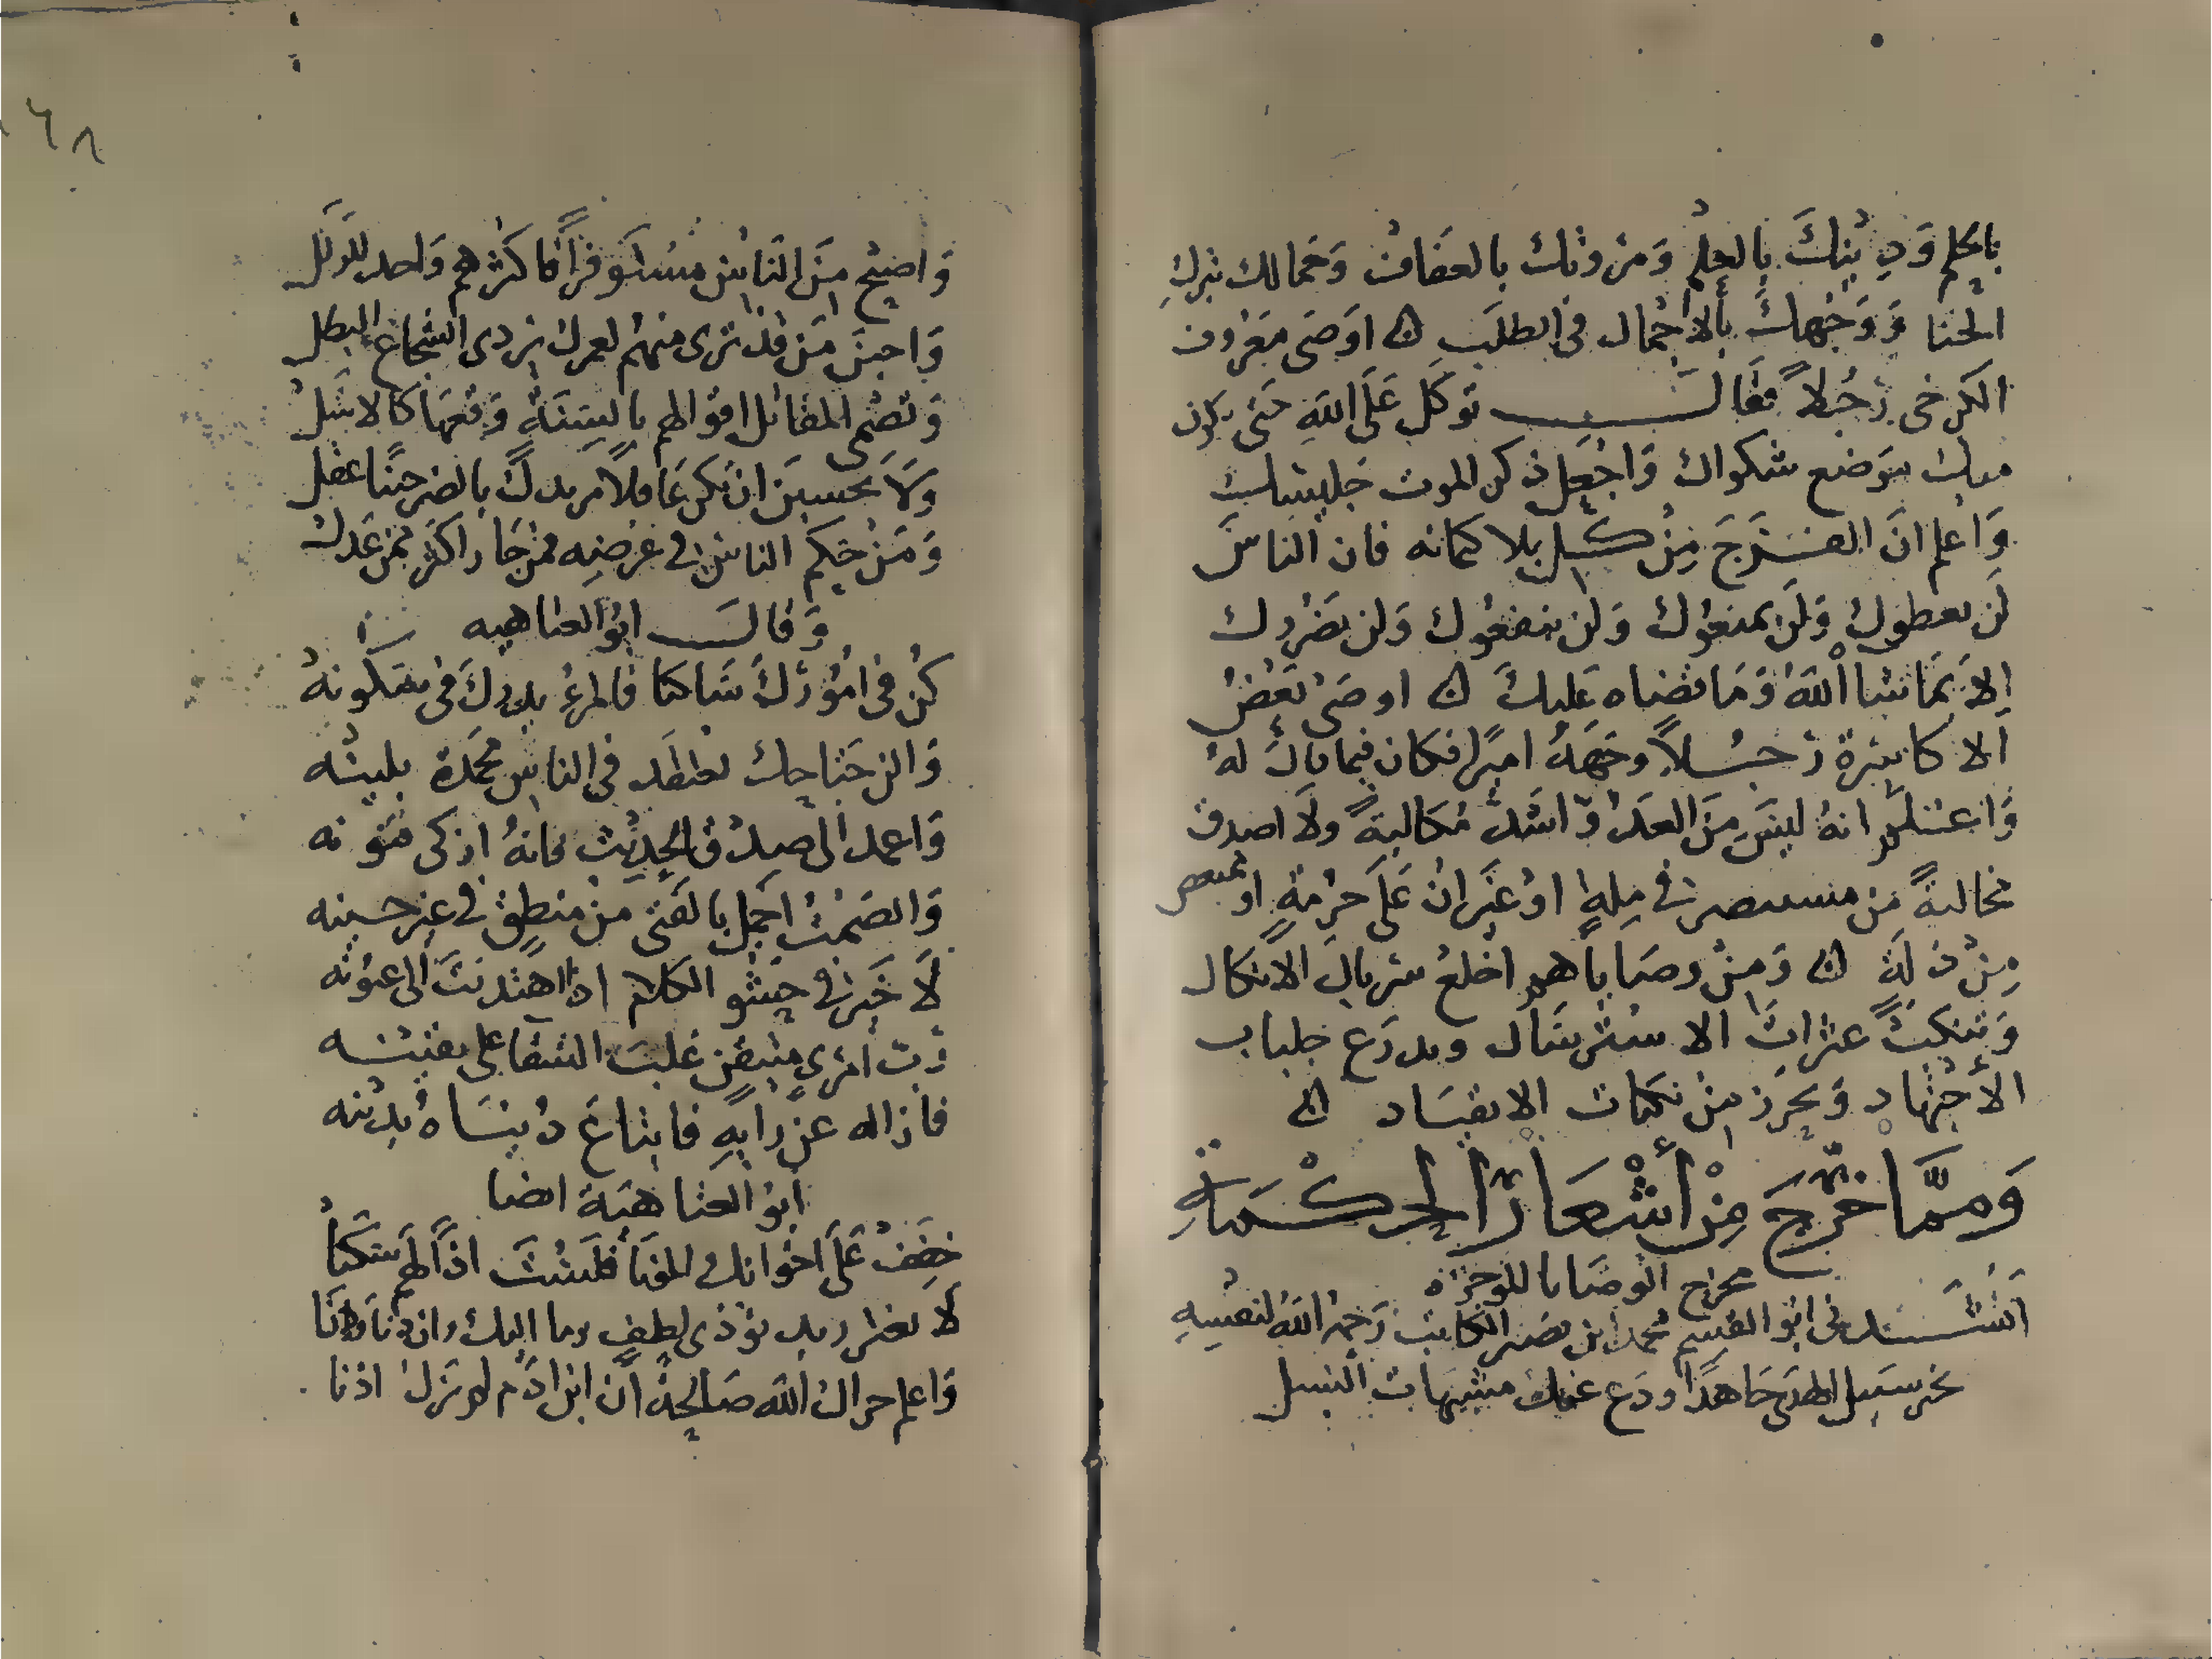 بالحلم وَدِينكَ بِالعِلمْ وَمرُوتك بالعَفَافْ وَجَمالك بترك
الخنا وَوَجْهكَ بالاجْمال فى الطلَبِ ن اوَصَى مَعرُوف
الكرخى رَجُلاً فقَالَ توكل عَلَى اللهِ حَتى يكون
موضع شكواك وَاجْعَل ذكر الموت جَليسك
وَاعلم انَ الفَرَجَ مِنْ كل بلا كتمانه فان الناسَ
لَن يعطوك وَلَن يمنعُوك وَلن ينفعُوك وَلن يَضرُوك
اِلا بمَا شا اللهُ وَمَا قضاه عَليكَ ن اوصَى بَعْضُ
الاكاسرة رَجُلاً وجهَهُ اميرًا فكان فيما قالَ لهُ
وَاعْلَم انهُ ليسَ مِنَ العَدُو اَشَدُّ مُكالبةً ولا اصدق
مخالبةً مِن مستبصر فى مِلةٍ اوْ غيَران عَلَى حَرْمةٍ او ممتعض
مِنْ ذلَةٍ ن وَمِنْ وصَاياهم اخلعْ سربالَ الاتكال
وَتنكبْ عثراتَ الاسْترسَال وتدرَع جلباب
الأجْتهاد وَتحَرز مِن نكبات الانقيَاد ن
وَمِمَّا خرّجَ مِنْ أَشْعَارِ الحِكْمَةِ
مخرج الوصَايا الموجزه
اَنْشَدنى ابو القسِم محمد ابن نصر الكاتب رَحِمهُ اللهُ لنفسِهِ
تحر سَبيل الهدَى جَاهدًا ودَع عنك مشبهات السبل
وَاضْحِ مِنَ النَاسِ مسْتَوفزًا فاكثرهم وَاحد للزلَل
وَاجبنَ مَن قدْ ترى منهُم لعمرك يردى الشجاعَ البطل
وَتصْمى المقاتل اقوالهم بالسنَةٍ وَقعهَا كالاسَل
وَلاَ تحسبَن ان تكن غافلاً مريدكَ بالضر حينًا غفل
وَمَنْ حَكمَ الناسَ فى عرْضِه فمن جَار اكثر ممن عَدل
وَقالَ ابوُ العتاهيه
كنْ فى امُورْكَ سَاكنا فالمرءُ يدركَ فى سكونهْ
وَالن جَنَاحك تعتقد فى الناسِ مَحمَدة بلينه
وَاعمد الى صِدْق الحَديث فانهُ ازكى فنونه
وَالصَمتُ اجمل بالفَتى من منطِقٍ فى غير حينه
لاَ خَير فى حشو الكلام اذا اهتديتَ الى عيونه
رُبَ امْرئ متيقن غلبَ الشقا على يقينه
فازاله عَنْ رَايهِ فابتاعَ دُنيَاهُ بدينه
ابو العتاهيَة ايضا
خفِفْ عَلَى اخْوانك المؤنا فلستَ اذًا لهم سَكنا
لاَ تغترر بدنو ذى لطفٍ
وَاعلم جزاك الله صَالحةً اَن ابن ادَم لم يزل اذنا